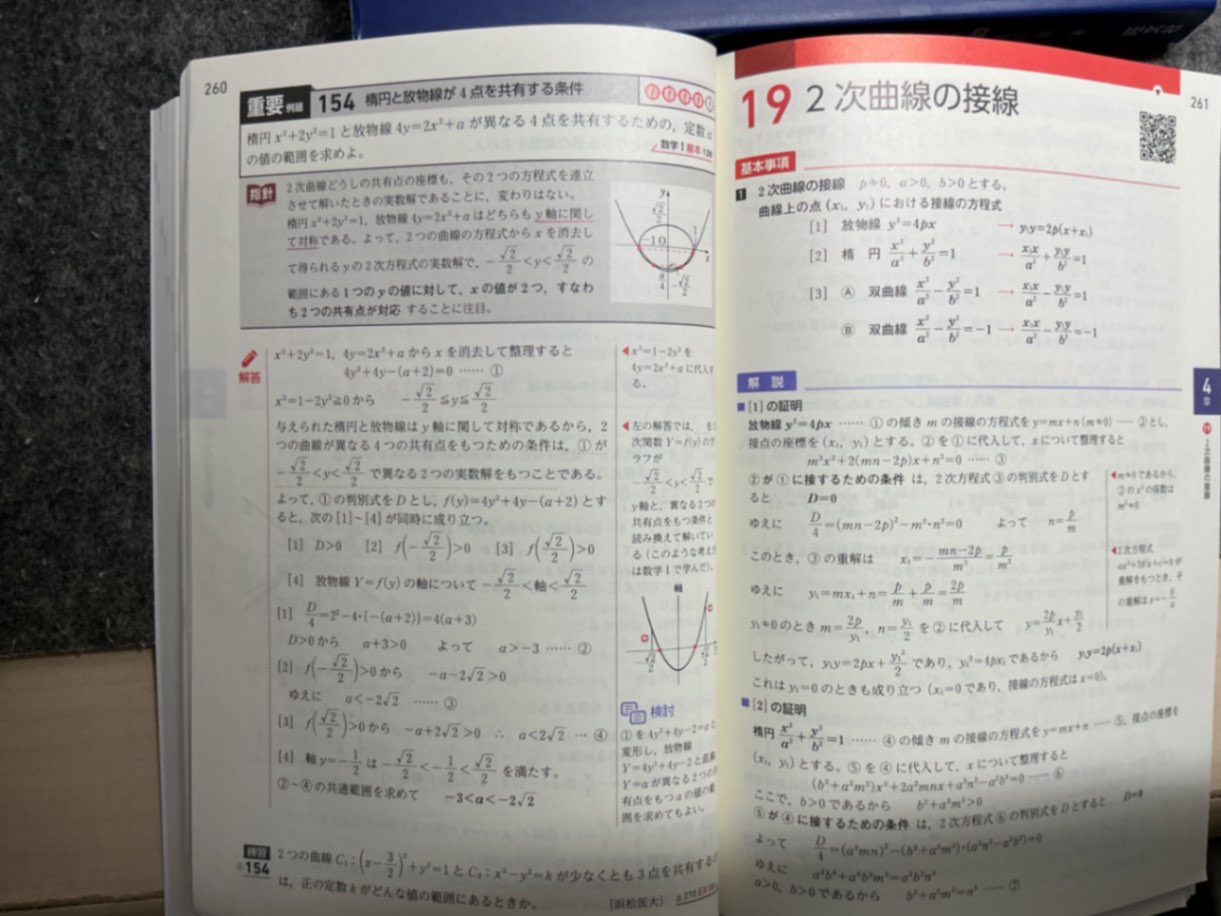 260
重要 例題 154 楕円と放物線が4点を共有する条件
楕円 x²+2y²=1 と放物線 4y=2x²+a が異なる4点を共有するための，定数 a
の値の範囲を求めよ。
数学Ⅰ基本
指針
2次曲線どうしの共有点の座標も，その2つの方程式を連立
させて解いたときの実数解であることに，変わりはない。
楕円 x²+2y²=1，放物線 4y=2x²+a はどちらも y軸に関し
て対称である。よって，2つの曲線の方程式から x を消去し
て得られる y の2次方程式の実数解で，-√2/2<y<√2/2 の
範囲にある1つの y の値に対して，x の値が2つ，すなわ
ち2つの共有点が対応 することに注目。
解答
x²+2y²=1，4y=2x²+a から x を消去して整理すると
4y²+4y-(a+2)=0 …… ①
x²=1-2y²≧0 から -√2/2≦y≦√2/2
与えられた楕円と放物線は y軸に関して対称であるから，2
つの曲線が異なる4つの共有点をもつための条件は，①が
-√2/2<y<√2/2 で異なる2つの実数解をもつことである。
よって，①の判別式を D とし，f(y)=4y²+4y-(a+2) とす
ると，次の [1]～[4] が同時に成り立つ。
[1] D>0 [2] f(-√2/2)>0 [3] f(√2/2)>0
[4] 放物線 Y=f(y) の軸について -√2/2<軸<√2/2
[1] D/4=2²-4・{-(a+2)}=4(a+3)
D>0 から a+3>0 よって a>-3 …… ②
[2] f(-√2/2)>0 から -a-2√2>0
ゆえに a<-2√2 …… ③
[3] f(√2/2)>0 から -a+2√2>0 ∴ a<2√2 … ④
[4] 軸 y=-1/2 は -√2/2<-1/2<√2/2 を満たす。
②～④の共通範囲を求めて -3<a<-2√2
◀x²=1-2y² を
4y=2x²+a に代入す
る。
◀左の解答では，
次関数 Y=f(y) の
ラフが
-√2/2<y<√2/2 で
y軸と，異なる2つ
共有点をもつ条件と
読み換えて解いてい
る（このような考え
は数学Ⅰで学んだ）。
軸
検討
①を 4y²+4y-2=a と
変形し，放物線
Y=4y²+4y-2 と直線
Y=a が異なる2つの
有点をもつ a の値の
囲を求めてもよい。
練習
154
2つの曲線 C₁：(x-3/2)²+y²=1 と C₂：x²-y²=k が少なくとも3点を共有する
は，正の定数 k がどんな値の範囲にあるときか。
［浜松医大］
p.270
261
19 2次曲線の接線
基本事項
1 2次曲線の接線 p≠0，a>0，b>0 とする。
曲線上の点 (x₁，y₁) における接線の方程式
[1] 放物線 y²=4px → y₁y=2p(x+x₁)
[2] 楕 円 x²/a²+y²/b²=1 → x₁x/a²+y₁y/b²=1
[3] Ⓐ 双曲線 x²/a²-y²/b²=1 → x₁x/a²-y₁y/b²=1
Ⓑ 双曲線 x²/a²-y²/b²=-1 → x₁x/a²-y₁y/b²=-1
解 説
■[1] の証明
放物線 y²=4px …… ① の傾き m の接線の方程式を y=mx+n (m≠0) …… ② とし，
接点の座標を (x₁，y₁) とする。②を①に代入して，x について整理すると
m²x²+2(mn-2p)x+n²=0 …… ③
②が①に接するための条件 は，2次方程式③の判別式を D とす
ると D=0
ゆえに D/4=(mn-2p)²-m²・n²=0 よって n=p/m
このとき，③の重解は x₁=-(mn-2p)/m²=p/m²
ゆえに y₁=mx₁+n=p/m+p/m=2p/m
y₁≠0 のとき m=2p/y₁，n=y₁/2 を②に代入して y=2p/y₁ x+y₁/2
したがって，y₁y=2px+y₁²/2 であり，y₁²=4px₁ であるから y₁y=2p(x+x₁)
これは y₁=0 のときも成り立つ（x₁=0 であり，接線の方程式は x=0）。
◀m≠0 であるから，
③の x² の係数は
m²≠0
◀2次方程式
重解をもつとき，そ
の重解は
■[2] の証明
楕円 x²/a²+y²/b²=1 …… ④ の傾き m の接線の方程式を y=mx+n …… ⑤，接点の座標を
(x₁，y₁) とする。⑤を④に代入して，x について整理すると
(b²+a²m²)x²+2a²mnx+a²n²-a²b²=0 …… ⑥
ここで，b>0 であるから b²+a²m²>0
⑤が④に接するための条件 は，2次方程式⑥の判別式を D とすると D=0
よって D/4=(a²mn)²-(b²+a²m²)・(a²n²-a²b²)=0
ゆえに a²b⁴+a⁴b²m²=a²b²n²
a>0，b>0 であるから b²+a²m²=n² …… ⑦
4
章
19 2次曲線の接線